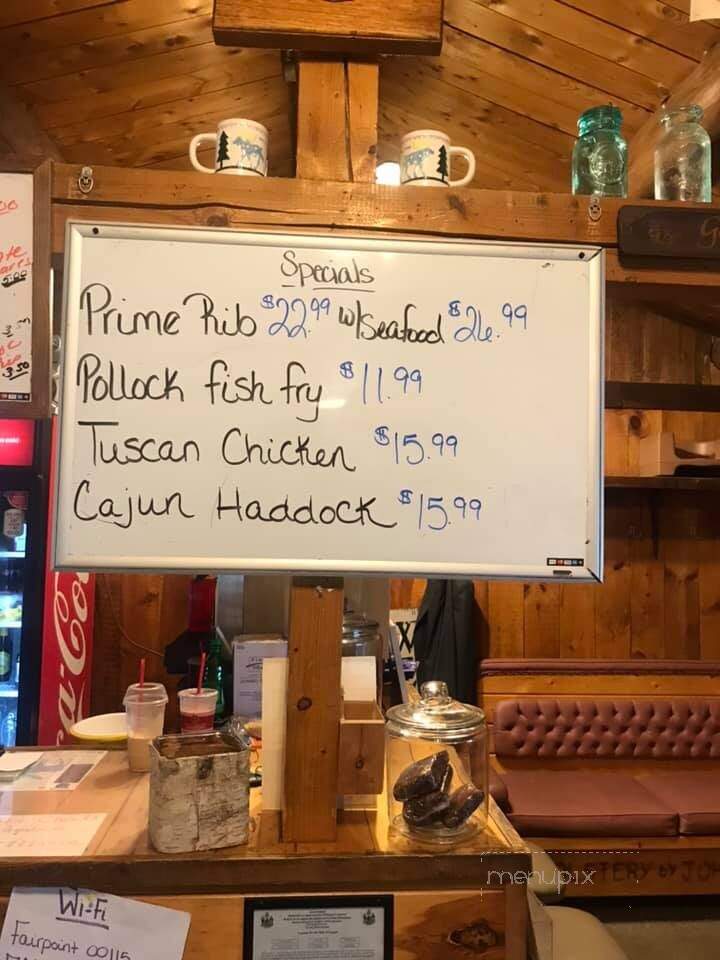 Specials
Prime Rib $22.99 w/Seafood $26.99
Pollock fish fry $11.99
Tuscan Chicken $15.99
Cajun Haddock $15.99
menupix
Wi-Fi
Fairpoint 00115